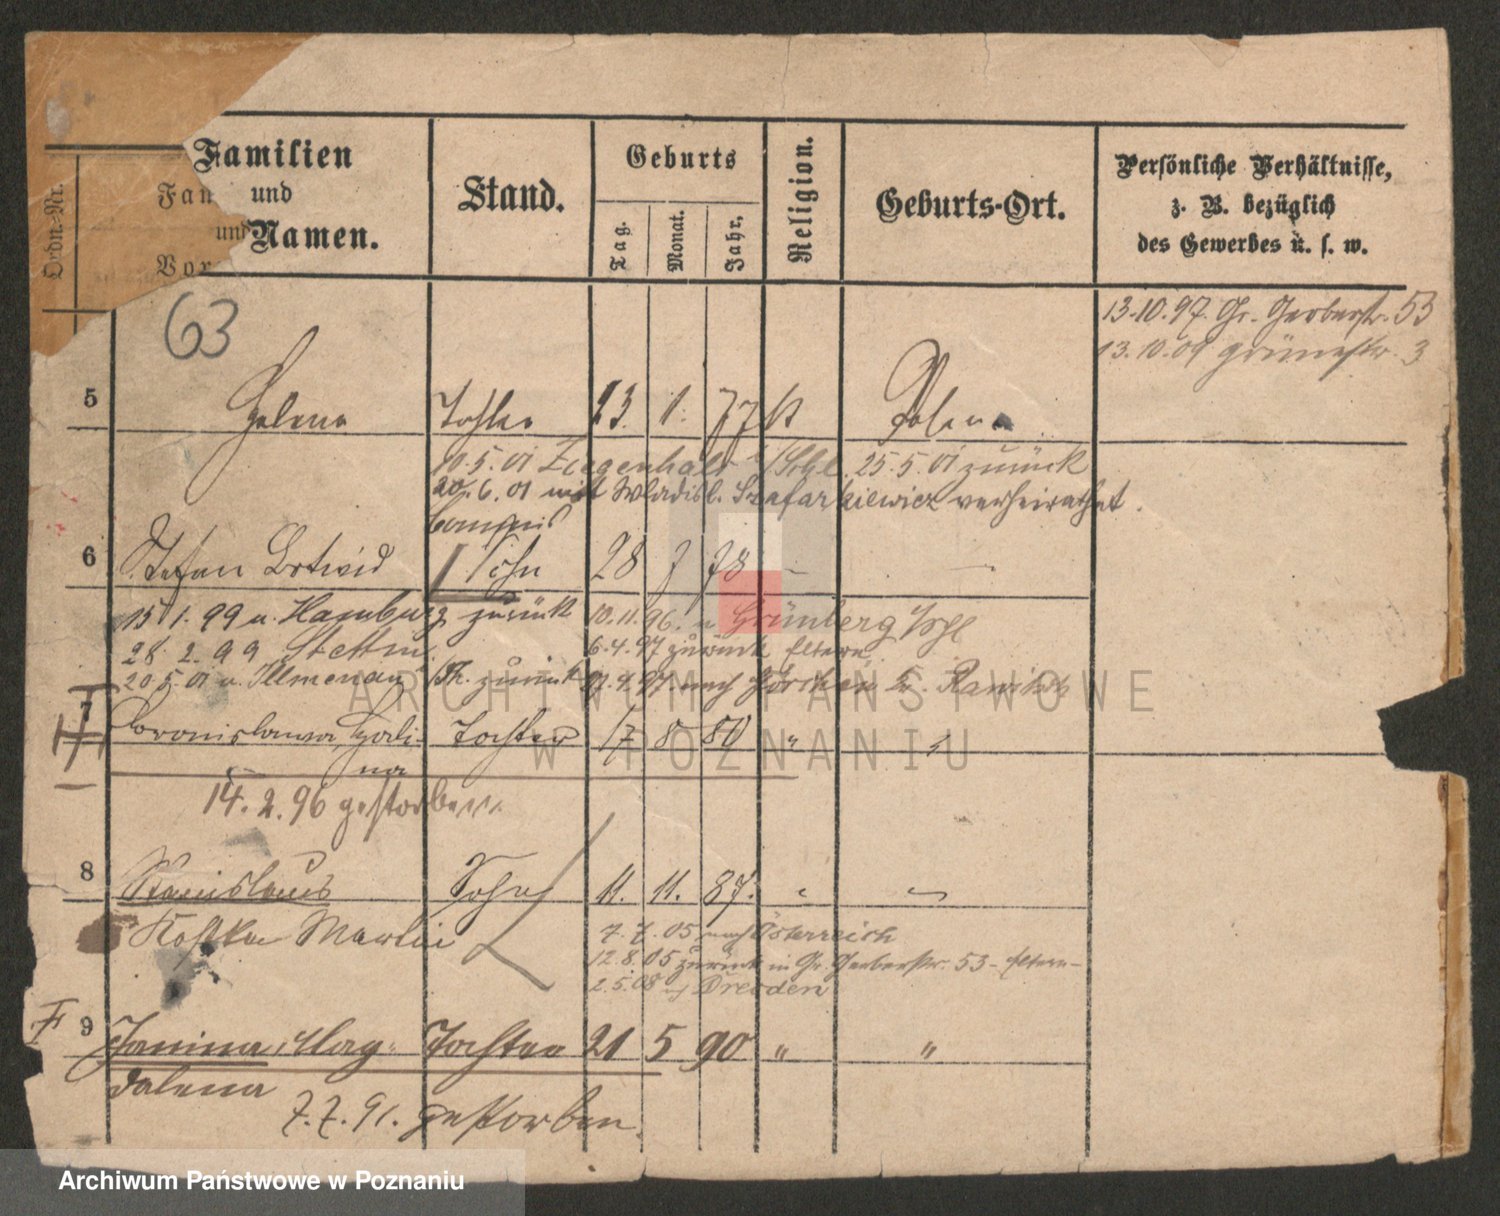 Ordn.-Nr.
Familien
Fan und
und Namen.
Vor
Stand.
Geburts
Tag.
Monat.
Jahr.
Religion.
Geburts-Ort.
Persönliche Verhältnisse,
z. B. bezüglich
des Gewerbes u. s. w.
63
13.10.97. Gr. Gerberstr. 53
13.10.09 Grünestr. 3
5 Helena Tochter 23. 1. 77 k Posen
10.5.01 Ziegenhals /Schl. 25.5.01 zurück
20.6.01 mit Wladisl. Szafarkiewicz verheirathet.
6 Stefan Sohn 28 7 78 –
15 1. 99 a. Hamburg zurück
10.11.96. n. Grünberg /Schl
28. 2. 99 Stettin
6.4.97 zurück Eltern
20.5.01 a. Illmenau /Th. zurück
nach Görchen Kr. Rawitsch
7 Bronislawa, Hedi-
na
Tochter 17 8 80 "
14. 2. 96 gestorben.
8 Stanislaus Sohn 11. 11. 87. "
Kostka Martin
7. 7. 05 nach Österreich
12.8.05 zurück in Gr. Gerberstr. 53 - Eltern -
2.5.08 n/ Dresden
9 Janina, Mag-
dalena
Tochter 21 5 90 " "
7. 7. 91. gestorben.
ARCHIWUM PAŃSTWOWE
W POZNANIU
Archiwum Państwowe w Poznaniu